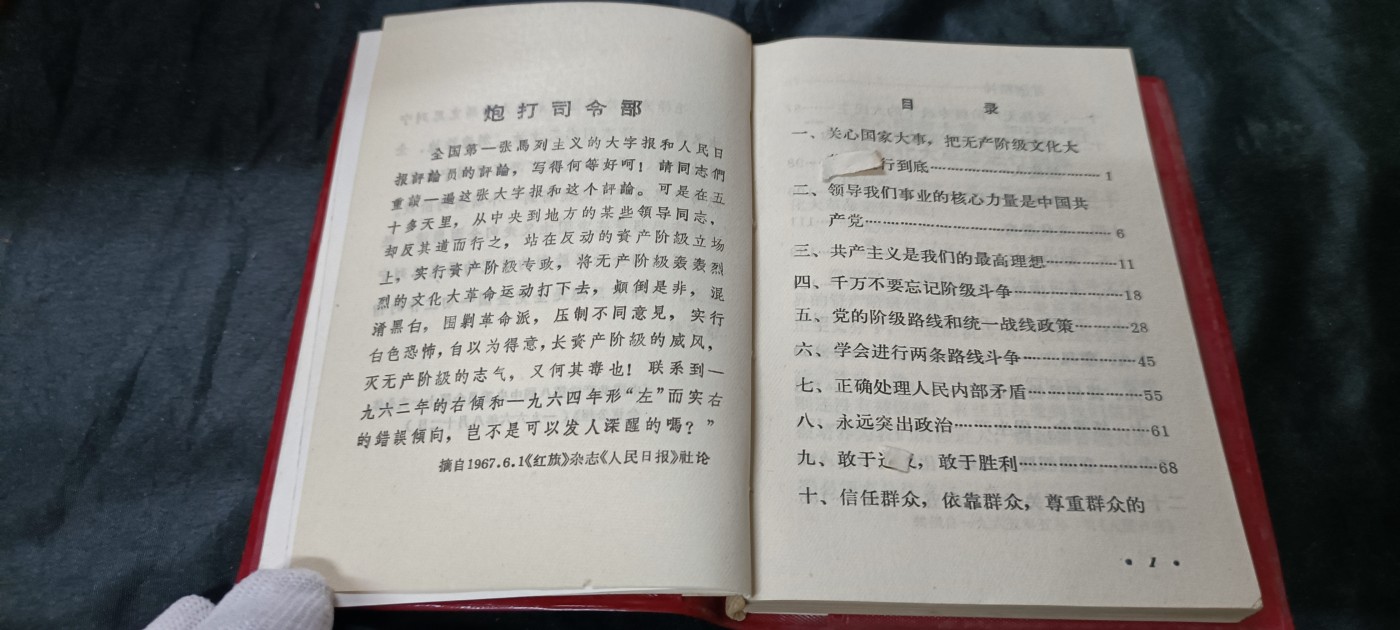 炮打司令部
全国第一张馬列主义的大字报和人民日
报評論员的評論，写得何等好呵！請同志們
重讀一遍这张大字报和这个評論。可是在五
十多天里，从中央到地方的某些领导同志，
却反其道而行之，站在反动的資产阶級立场
上，实行資产阶級专政，将无产阶級轰轰烈
烈的文化大革命运动打下去，颠倒是非，混
淆黑白，围剿革命派，压制不同意見，实行
白色恐怖，自以为得意，长資产阶級的威风，
灭无产阶級的志气，又何其毒也！联系到一
九六二年的右傾和一九六四年形“左”而实右
的錯誤傾向，岂不是可以发人深醒的嗎？”
摘自1967.6.1《红旗》杂志《人民日报》社论
目 录
一、关心国家大事，把无产阶级文化大
行到底 1
二、领导我们事业的核心力量是中国共
产党 6
三、共产主义是我们的最高理想 11
四、千万不要忘记阶级斗争 18
五、党的阶级路线和统一战线政策 28
六、学会进行两条路线斗争 45
七、正确处理人民内部矛盾 55
八、永远突出政治 61
九、敢于 ，敢于胜利 68
十、信任群众，依靠群众，尊重群众的
• 1 •